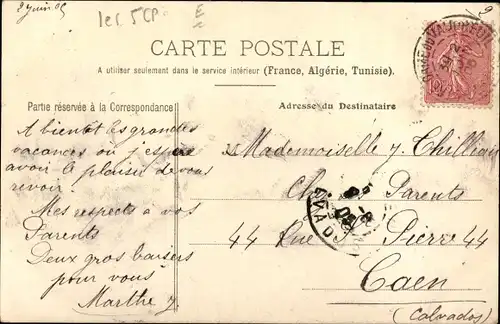 2 Juin 05
1er 5CP
E
9
CARTE POSTALE
A utiliser seulement dans le service intérieur (France, Algérie, Tunisie).
Partie réservée à la Correspondance
Adresse du Destinataire
A bientôt les grandes
vacances où j'espère
avoir le plaisir de vous
revoir.
Mes respects à vos
Parents
Deux gros baisers
pour vous
Marthe J.
Mademoiselle J. Thillian
Chez Parents
44 Rue St Pierre 44
Caen
(Calvados)